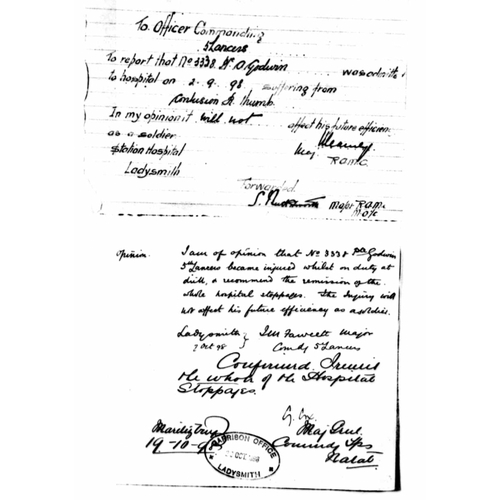 To Officer Commanding
5 Lancers
To report that No 3338 Godwin was
to hospital on 2.9.98 suffering from
Contusion Rt thumb.
In my opinion it will not affect his future efficien
as a soldier
Station Hospital Maj RAMC
Ladysmith
Forwarded
S. Major RAM
MOIC
Opinion I am of opinion that No 3338 Pte Godwin
5th Lancers became injured whilst on duty at
drill, & recommend the remission of the
whole hospital stoppages. The Injury will
not affect his future efficiency as a soldier.
Ladysmith J M Fawcett Major
7 Oct 98 Comdg 5 Lancers
Confirmed I remit
the whole of the Hospital
Stoppages.
Maj Genl
19-10-98 Commdg Tps
Natal
GARRISON OFFICE
LADYSMITH